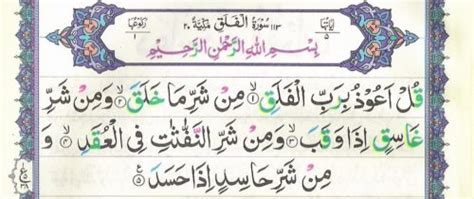 اٰيَاتُهَا ٥ ١١٣ سُوْرَةُ الْفَلَقِ مَدَنِيَّةٌ ٢٠ رُكُوْعُهَا ١
بِسْمِ اللّٰهِ الرَّحْمٰنِ الرَّحِيْمِ
قُلْ اَعُوْذُ بِرَبِّ الْفَلَقِ ۙ﴿۱﴾ مِنْ شَرِّ مَا خَلَقَ ۙ﴿۲﴾ وَمِنْ شَرِّ
غَاسِقٍ اِذَا وَقَبَ ۙ﴿۳﴾ وَمِنْ شَرِّ النَّفّٰثٰتِ فِى الْعُقَدِ ۙ﴿۴﴾ وَ
مِنْ شَرِّ حَاسِدٍ اِذَا حَسَدَ ﴿۵﴾ ع